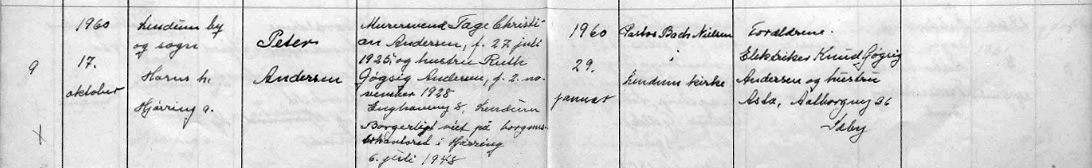 9
1960
17.
oktober
Lendum by
og sogn
Horns h.
Hjørring a.
Peter
Andersen
Murersvend Tage Christi-
an Andersen, f. 27. juli
1925 og hustru Ruth
Gøgsig Andersen, f. 2. no-
vember 1928
Enghavevej 8, Lendum
Borgerligt viet på borgmes-
terkontoret i Hjørring
6. juli 1948
1960
29.
januar
Pastor Bach Nielsen
Lendum kirke
Forældrene.
Elektriker Knud Gøgsig
Andersen og hustru
Asta, Aalborgvej 26